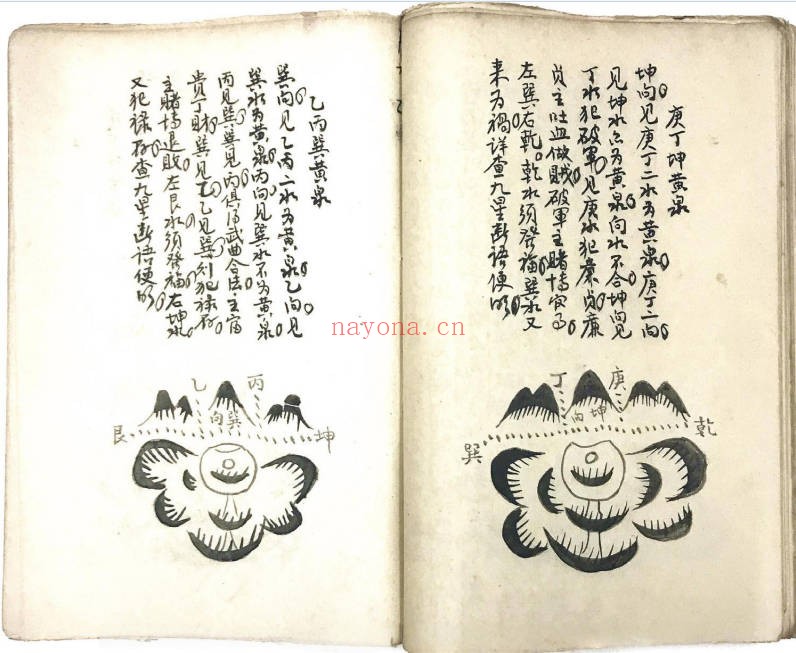 庚丁坤黄泉
坤向见庚丁二水为黄泉庚丁二向
见坤水亦为黄泉向水不合坤向见
丁水犯破軍见庚水犯廉貞廉
貞主吐血做贼破軍主賭博
左巽右乾乾水须發福巽水又
来为禍詳查九星断语便明
丁
庚
坤向
巽
乾
乙丙巽黄泉
巽向见乙丙二水为黄泉乙向见
巽水为黄泉丙向见巽水不为黄泉
丙见巽巽见丙俱得武曲合法主富
貴丁财巽见乙乙见巽则犯禄存
主賭博退败左艮水须發福右坤水
又犯禄存查九星断语便明
乙
丙
巽向
艮
坤
nayona.cn